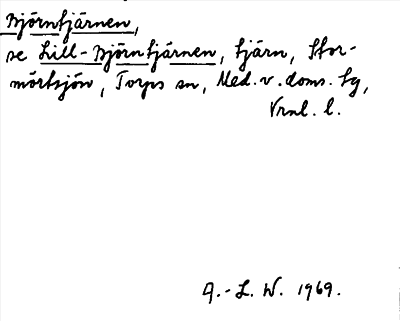 Björntjärnen,
se Lill-Björntjärnen, tjärn, Stor-
mörtsjön, Torps sn, Med. v. doms. tg,
Vrnl. l.
A.-L. W. 1969.